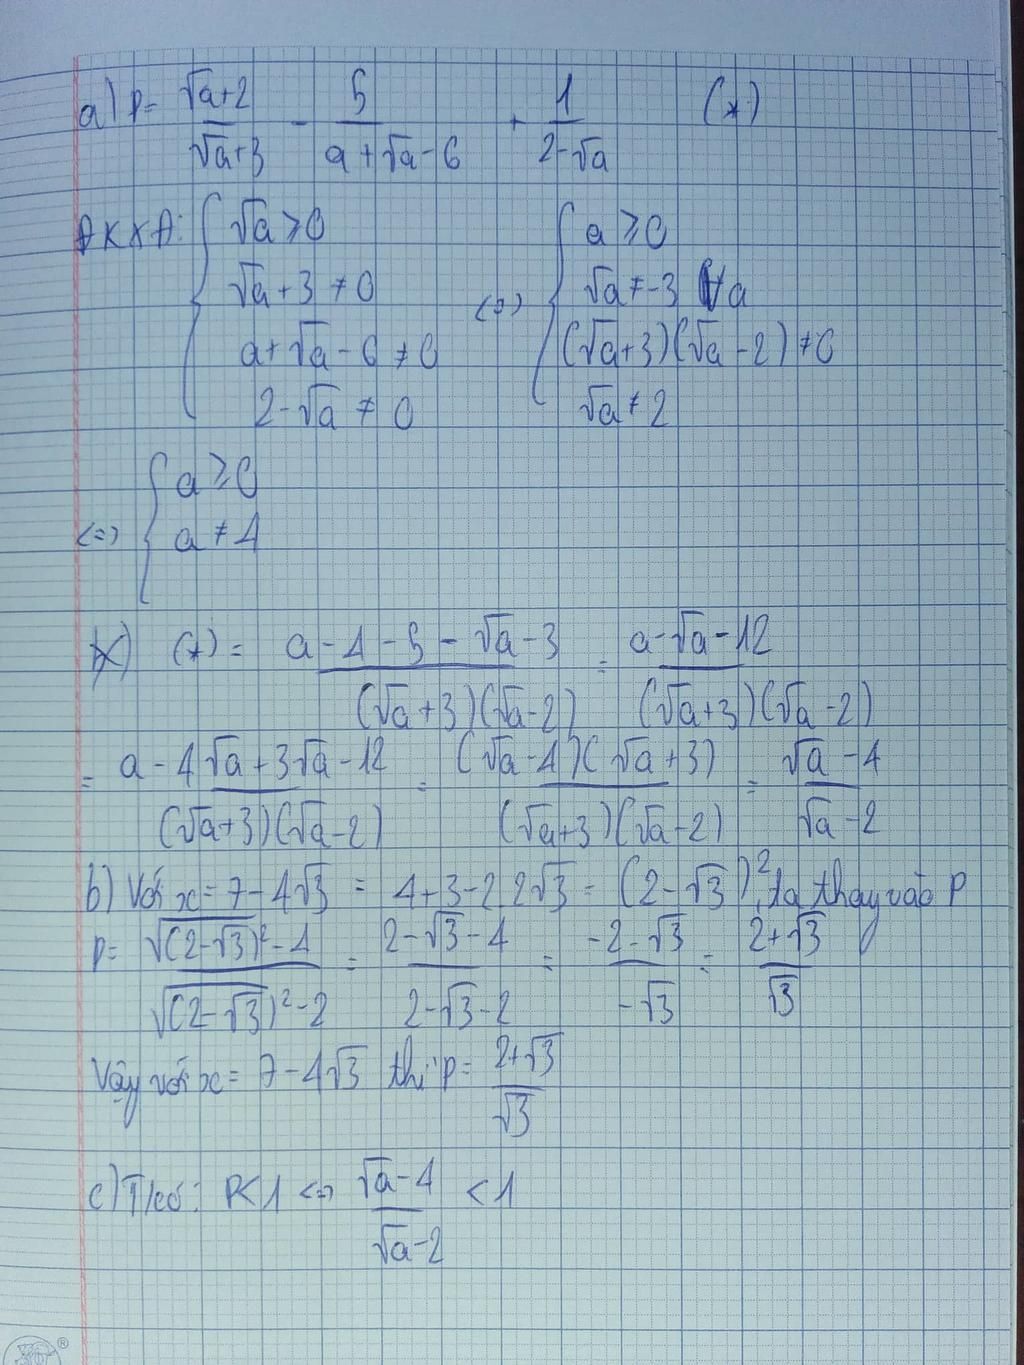 a) P = (√a+2)/(√a+3) - 5/(a+√a-6) + 1/(2-√a) (*)
ĐKXĐ: { √a ≥ 0 <=> { a ≥ 0
√a + 3 ≠ 0 √a ≠ -3 ∀a
a + √a - 6 ≠ 0 (√a+3)(√a-2) ≠ 0
2 - √a ≠ 0 √a ≠ 2
<=> { a ≥ 0
a ≠ 4
(*) = (a - 4 - 5 - √a - 3)/((√a+3)(√a-2)) = (a - √a - 12)/((√a+3)(√a-2))
= (a - 4√a + 3√a - 12)/((√a+3)(√a-2)) = ((√a-4)(√a+3))/((√a+3)(√a-2)) = (√a - 4)/(√a - 2)
b) Với x = 7 - 4√3 = 4+3-2.2√3 = (2-√3)², ta thay vào P
P = (√(2-√3)² - 4)/(√(2-√3)² - 2) = (2-√3-4)/(2-√3-2) = (-2-√3)/(-√3) = (2+√3)/√3
Vậy với x = 7 - 4√3 thì P = (2+√3)/√3
c) T/có: P<1 <=> (√a-4)/(√a-2) < 1